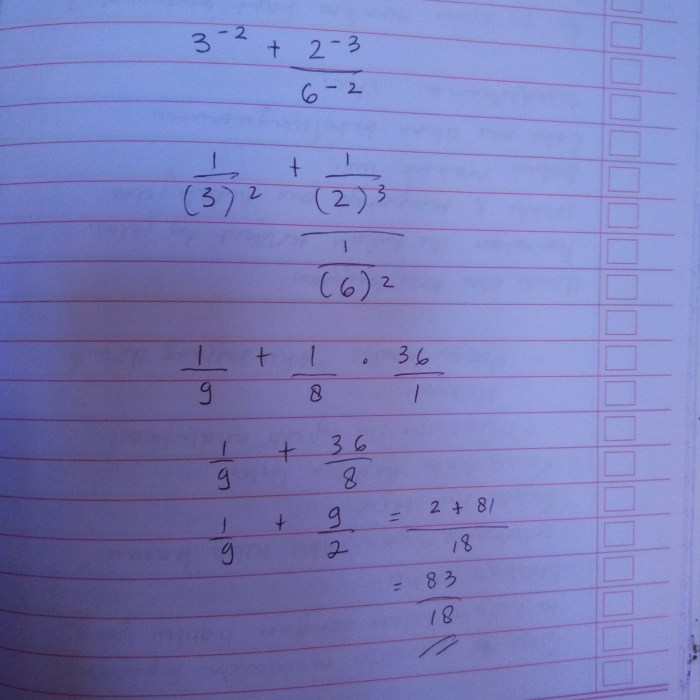 3⁻² + 2⁻³/6⁻²
1/(3)² + 1/(2)³ / 1/(6)²
1/9 + 1/8 . 36/1
1/9 + 36/8
1/9 + 9/2 = 2 + 81/18
= 83/18